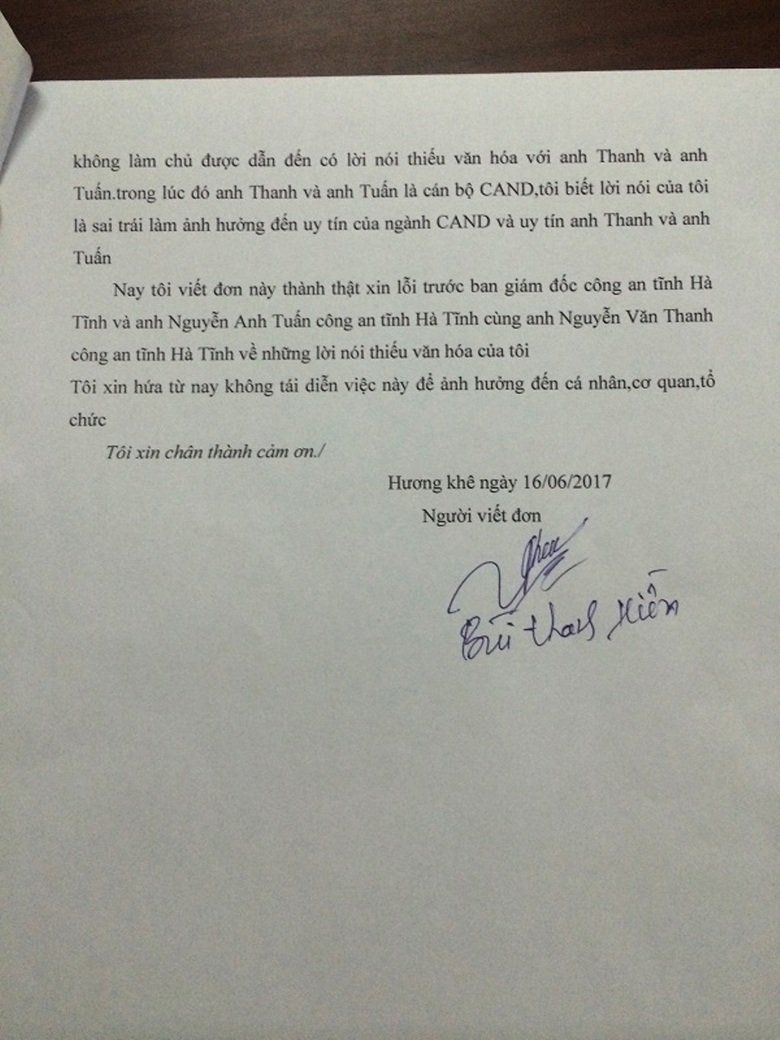 không làm chủ được dẫn đến có lời nói thiếu văn hóa với anh Thanh và anh
Tuấn.trong lúc đó anh Thanh và anh Tuấn là cán bộ CAND,tôi biết lời nói của tôi
là sai trái làm ảnh hưởng đến uy tín của ngành CAND và uy tín anh Thanh và anh
Tuấn
Nay tôi viết đơn này thành thật xin lỗi trước ban giám đốc công an tĩnh Hà
Tĩnh và anh Nguyễn Anh Tuấn công an tĩnh Hà Tĩnh cùng anh Nguyễn Văn Thanh
công an tĩnh Hà Tĩnh về những lời nói thiếu văn hóa của tôi
Tôi xin hứa từ nay không tái diễn việc này để ảnh hưởng đến cá nhân,cơ quan,tổ
chức
Tôi xin chân thành cảm ơn./
Hương khê ngày 16/06/2017
Người viết đơn
Bùi thanh